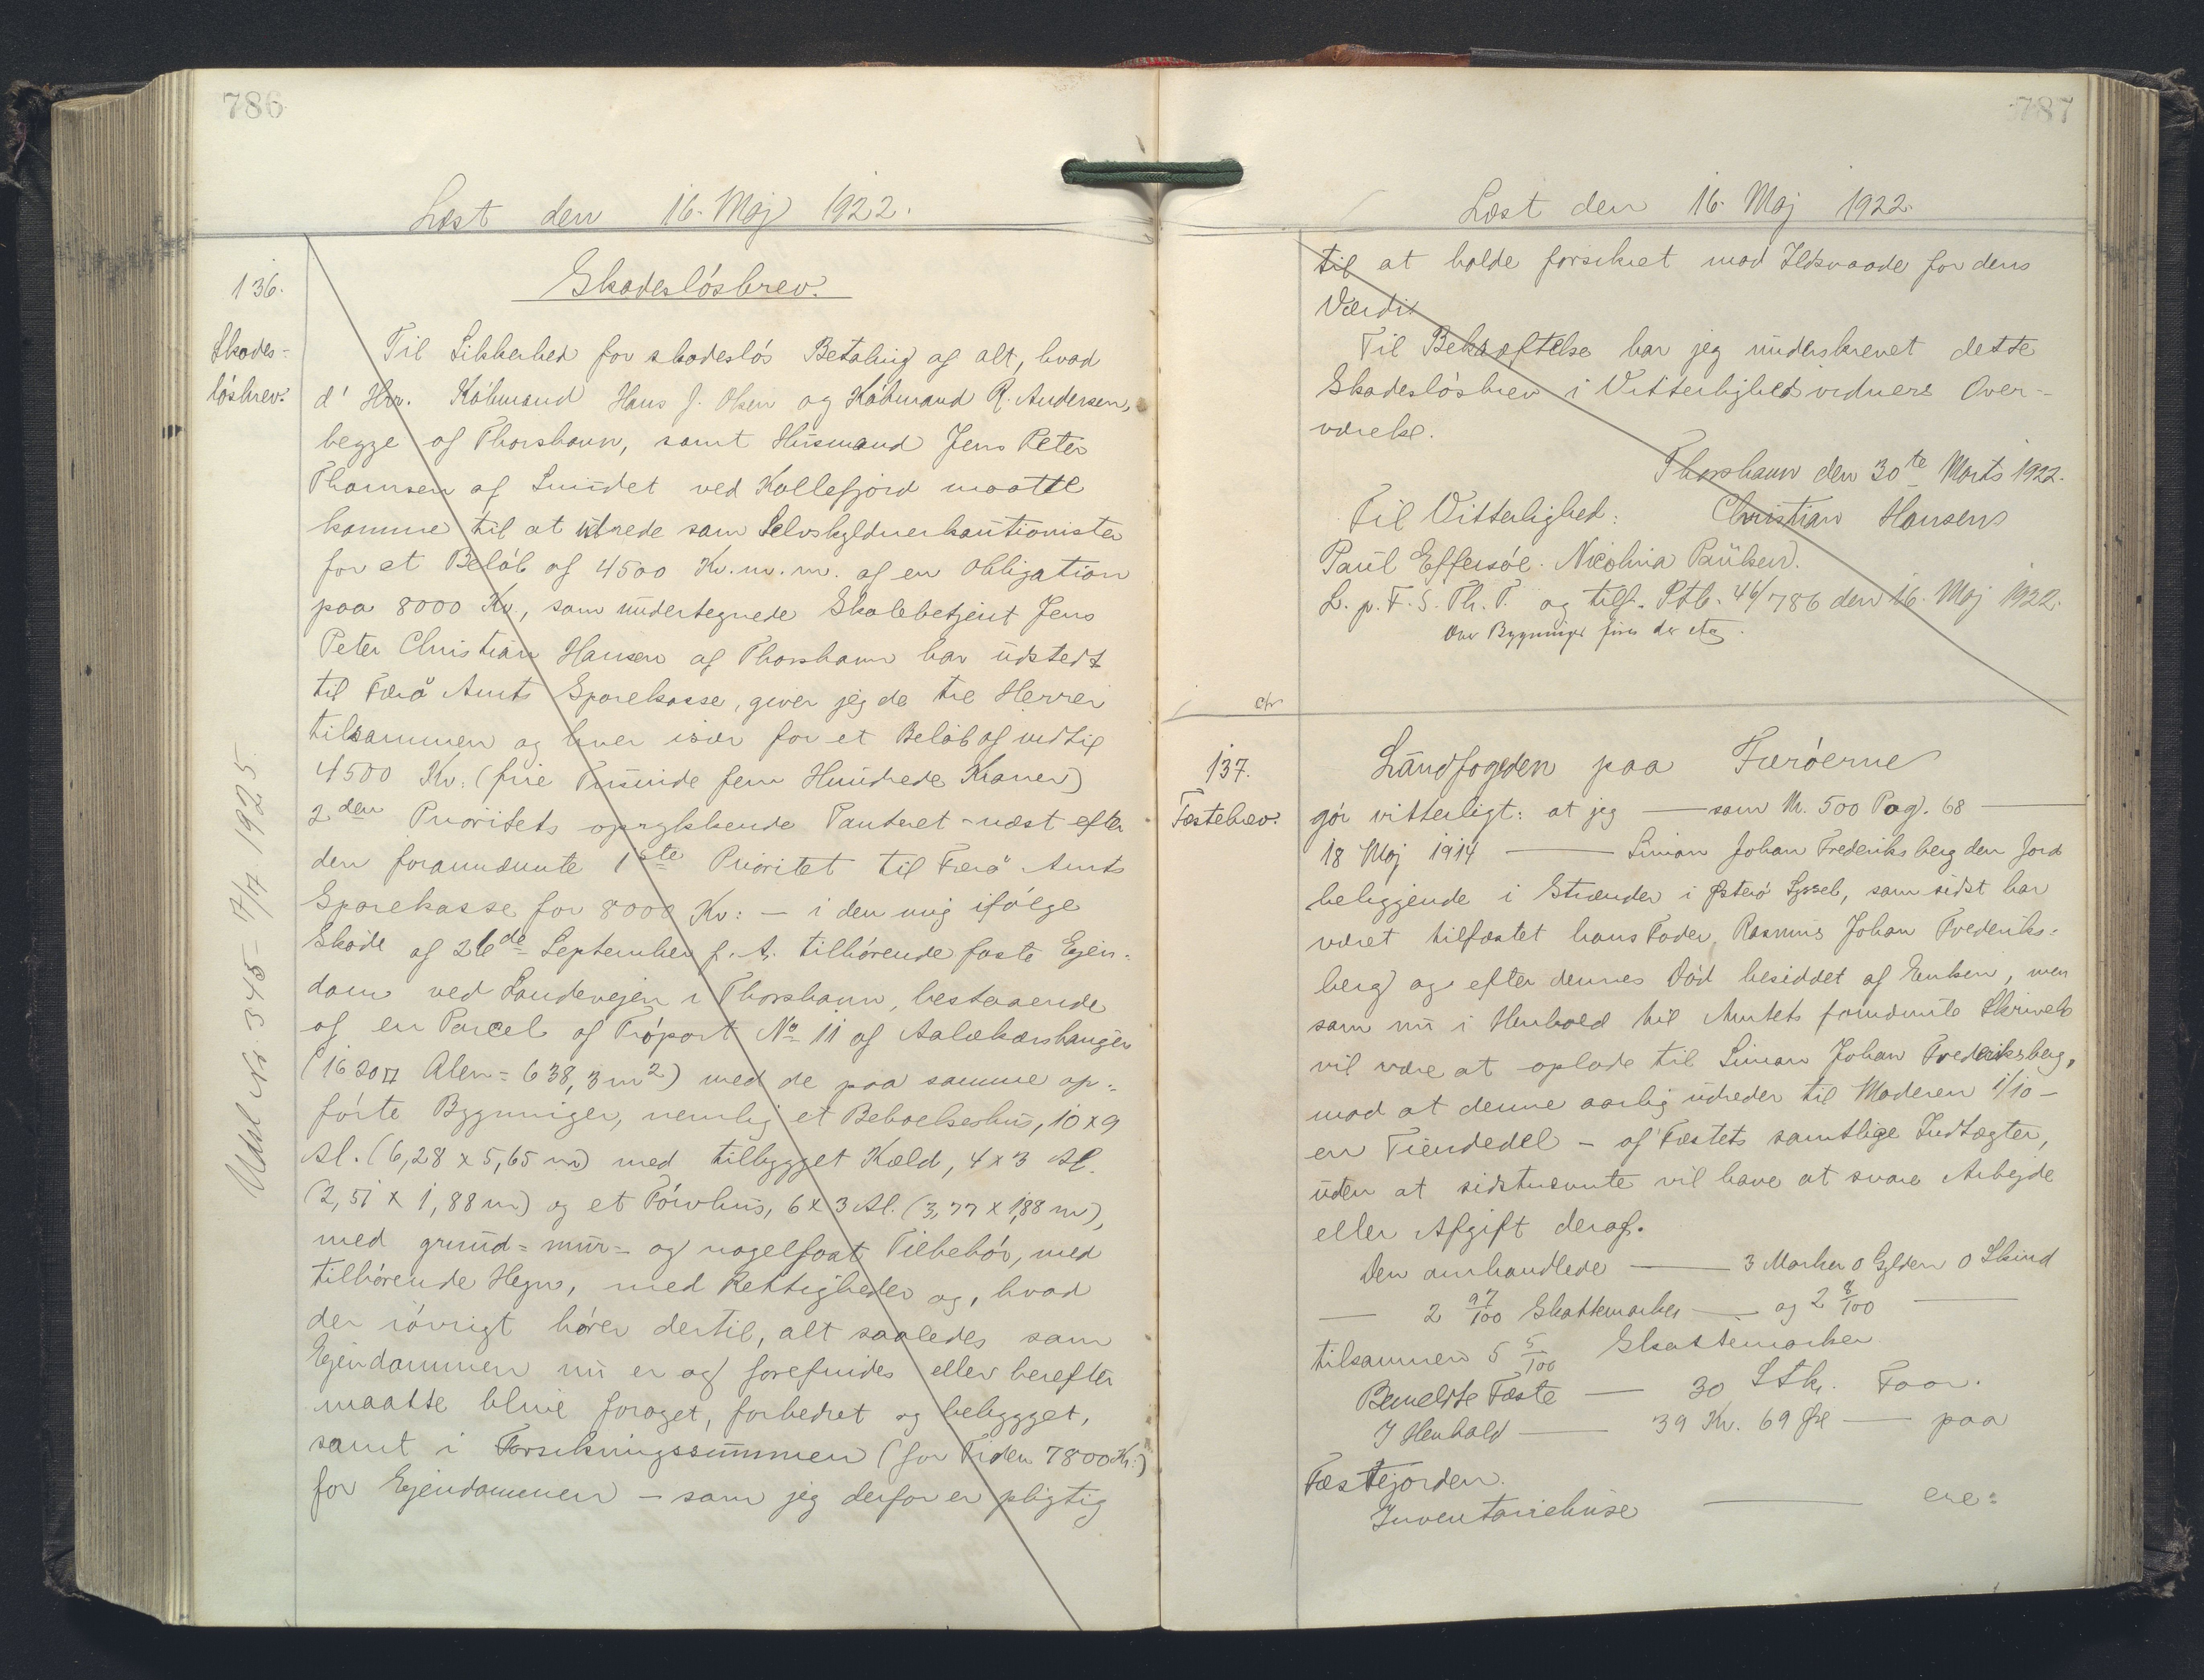 786
Læst den 16. Maj 1922.
136.
Skades-
løsbrev.
Udsl. Nr. 345 - 1925.
Skadesløsbrev.
Til Sikkerhed for skadesløs Betaling af alt, hvad
d'Hrr. Købmand Hans J. Olsen og Købmand R. Andersen,
begge af Thorshavn, samt Husmand Jens Peter
Thomsen af Sundet ved Kollefjord maatte
komme til at udrede som Selvskyldnerkautionister
for et Beløb af 4500 Kr. m. m. af en Obligation
paa 8000 Kr., som undertegnede Skolebetjent Jens
Peter Christian Hansen af Thorshavn har udstedt
til Færø Amts Sparekasse, giver jeg de tre Herrer
tilsammen og hver især for et Beløb af indtil
4500 Kr. (fire Tusinde fem Hundrede Kroner)
2den Prioritets oprykkende Panteret - næst efter
den forannævnte 1ste Prioritet til Færø Amts
Sparekasse for 8000 Kr: - i den mig ifølge
Skøde af 26de September f. A. tilhørende faste Ejen-
dom ved Landevejen i Thorshavn, bestaaende
af en Parcel af Trøport No 11 af Aalekærshaugen
(1620 □ Alen = 638,3 m2) med de paa samme op-
førte Bygninger, nemlig et Beboelseshus, 10 x 9
Al. (6,28 x 5,65 m) med tilbygget Kæld, 4 x 3 Al.
(2,51 x 1,88 m) og et Tørvhus, 6 x 3 Al. (3,77 x 1,88 m),
med grund- mur- og nagelfast Tilbehør, med
tilhørende Hegn, med Rettigheder og, hvad
der iøvrigt hører dertil, alt saaledes som
Ejendommen nu er og forefindes eller herefter
maatte blive foraget, forbedret og bebygget,
samt i Forsikringssummen (for Tiden 7800 Kr.)
for Ejendommen - som jeg derfor er pligtig
787
Læst den 16. Maj 1922.
til at holde forsikret mod Ildsvaade for dens
Værdi.
Til Bekræftelse har jeg underskrevet dette
Skadesløsbrev i Vitterlighedsvidners Over-
værelse.
Thorshavn den 30te Marts 1922.
Til Vitterlighed: Christian Hansen
Paul Effersøe. Nicolina Paulsen.
L. p. F. S. Th. T. og tilf. Ptb. 46/786 den 16. Maj 1922.
Over Bygninger
137.
Fæstebrev.
Landfogden paa Færøerne
gør vitterligt: at jeg — som M. 500 Pag. 68 —
18 Maj 1914 — Simon Johan Frederiksberg den Jord
beliggende i Strænder i Østerø Syssel, som sidst har
været tilfæstet hans Fader, Rasmus Johan Frederiks-
berg og efter dennes Død besiddet af Enken, men
som nu i Henhold til Amtets fornævnte Skrivelse
vil være at oplade til Simon Johan Frederiksberg,
mod at denne aarlig udreder til Moderen 1/10 -
en Tiendedel - af Fæstets samtlige Indtægter,
uden at sidstnævnte vil have at svare Arbejde
eller Afgift deraf.
Den omhandlede — 3 Marker 0 Gylden 0 Skind
— 2 97/100 Skattemarker — og 2 8/100 —
tilsammen 5 5/100 Skattemarker
Bemeldte Fæste — 30 Stk. Faar.
I Henhold — 39 Kr. 69 Øre — paa
Fæstejorden.
Inventariehuse — ere: